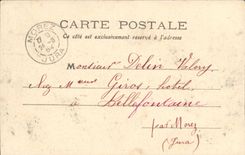 CARTE POSTALE
Ce côté est exclusivement réservé à l'adresse
MOREZ
JURA
Monsieur Delin Valery
chez Mme Girot, hôtel
à Bellefontaine
par Morez
(Jura)